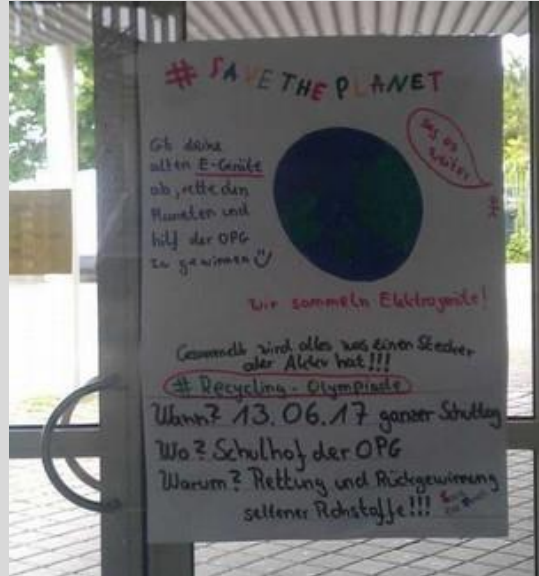 # SAVE THE PLANET
Gib deine
alten E-Geräte
ab, rette den
Planeten und
hilf der OPG
zu gewinnen
Sag es
weiter
Wir sammeln Elektrogeräte!
Gesammelt wird alles was einen Stecker
oder Akku hat!!!
# Recycling-Olympiade
Wann? 13.06.17 ganzer Schultag
Wo? Schulhof der OPG
Warum? Rettung und Rückgewinnung
seltener Rohstoffe!!!